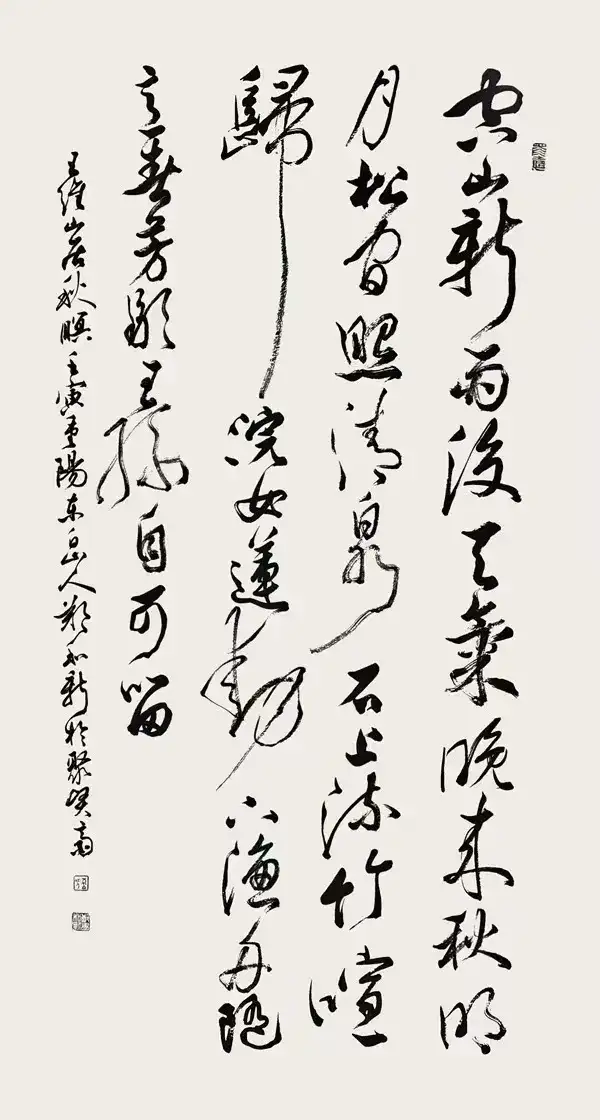 空山新雨後天氣晚来秋明
月松间照清泉石上流竹喧
歸浣女蓮動下漁舟隨
意春芳歇王孫自可留
王维山居秋暝壬寅重陽东白山人郑和新於聚賢斋